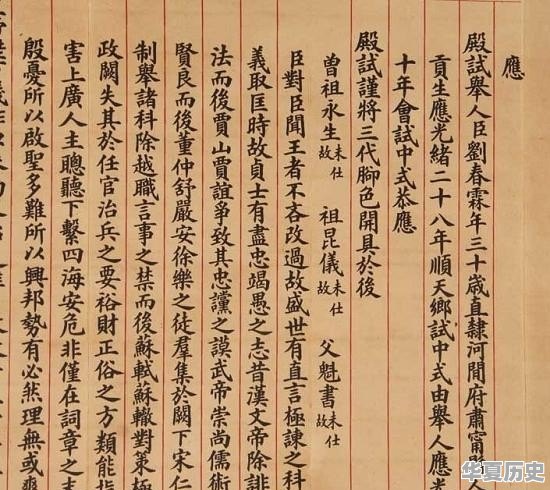 應
殿試舉人臣劉春霖年三十歲直隸河間府肅甯縣
貢生應光緒二十八年順天鄉試中式由舉人應光
十年會試中式恭應
殿試謹將三代腳色開具於後
曾祖永生未仕故 祖昆儀未仕故 父魁書未仕故
臣對臣聞王者不吝改過故盛世有直言極諫之科
義取匡時故貞士有盡忠竭愚之志昔漢文帝除誹
法而後賈山賈誼爭致其忠讜之謨武帝崇尚儒術
賢良而後董仲舒嚴安徐樂之徒羣集於闕下宋仁
制舉諸科除越職言事之禁而後蘇軾蘇轍對策極
政闕失其於任官治兵之要裕財正俗之方類能指
害上廣人主聰聽下繫四海安危非僅在詞章之
殷憂所以啟聖多難所以興邦勢有必然理無或爽
华夏历史